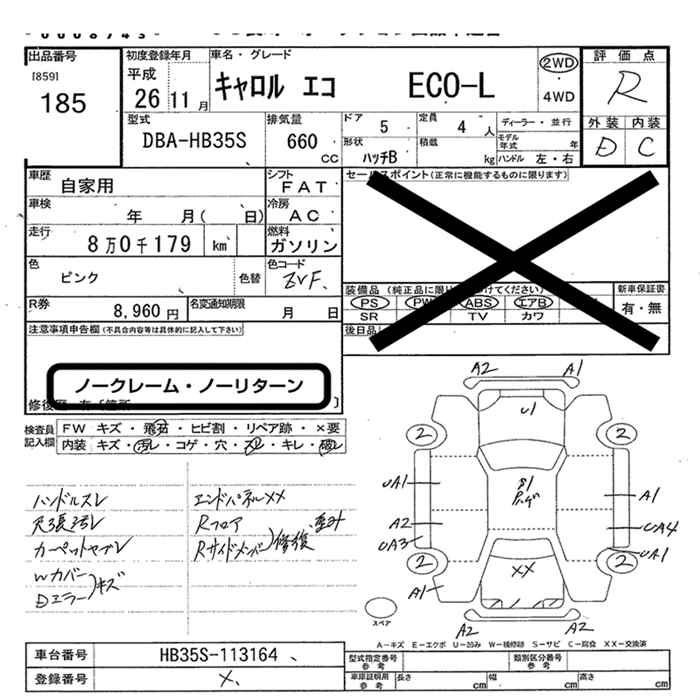 出品番号
[859]
185
初度登録年月
平成
26 11 月
車名・グレード
キャロル エコ ECO-L
2WD
4WD
評価点
R
外装 内装
D C
型式
DBA-HB35S
排気量
660
CC
ドア
5
定員
4 人
形状
ハッチB
積載
kg
ディーラー・並行
モデル年式 年
ハンドル 左・右
車歴
自家用
シフト
FAT
車検
年 月( 日)
冷房
AC
走行
8万0千179 km
燃料
ガソリン
色
ピンク
色替
色コード
ZVF.
R券
8,960 円
名変通知期限
月 日
セールスポイント(正常に機能するものに限ります)
装備品(純正品に限り 付けてください)
PS PW ABS エアB
SR TV カワ
新車保証書
有・無
後日品
注意事項申告欄(不具合内容等は具体的に記入して下さい)
ノークレーム・ノーリターン
修復歴
検査員記入欄
FW キズ・飛石・ヒビ割・リペア跡・×要
内装 キズ・汚レ・コゲ・穴・スレ・キレ・破レ
ハンドルスレ
天張汚レ
カーペットヤブレ
Wカバー
Dミラー)キズ
エンドパネルXX
Rフロア
Rサイドメンバー)修復
A2 A1
U1
2 2
UA1
A1
A2
UA4
UA3
UA1
2 2
XX
A1
A2
A2
スペア
A-キズ E-エクボ U-凹み W-補修跡 S-サビ C-腐食 XX-交換済
車台番号
HB35S-113164
登録番号
×
型式指定番号
参考
類別区分番号
参考
車庫証明用
参考
長さ cm
幅 cm
高さ cm